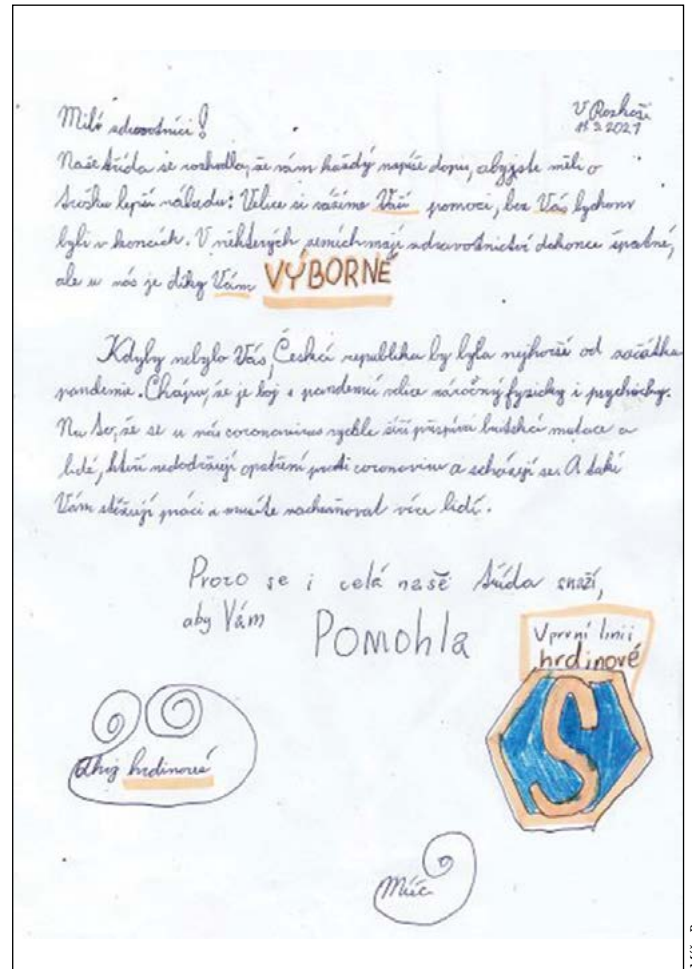 V Rozkoši
11. 3. 2021
Milí zdravotníci!
Naše třída se rozhodla, že vám každý napíše dopis, abyjste měli o
trošku lepší náladu: Velice si vážíme Vaší pomoci, bez Vás bychom
byli v koncích. V některých zemích mají zdravotnictví dokonce špatné,
ale u nás je díky Vám VÝBORNÉ
Kdyby nebylo Vás, Česká republika by byla nejhorší od začátku
pandemie. Chápu, že je boj s pandemií velice náročný fyzicky i psychicky.
Na to, že se u nás coronavirus rychle šíří přispívá britská mutace a
lidé, kteří nedodržují opatření proti coronaviru a scházejí se. A také
Vám stěžují práci a musíte zachraňovat více lidí.
Proto se i celá naše třída snaží,
aby Vám Pomohla
V první linii
hrdinové
S
hrdinové